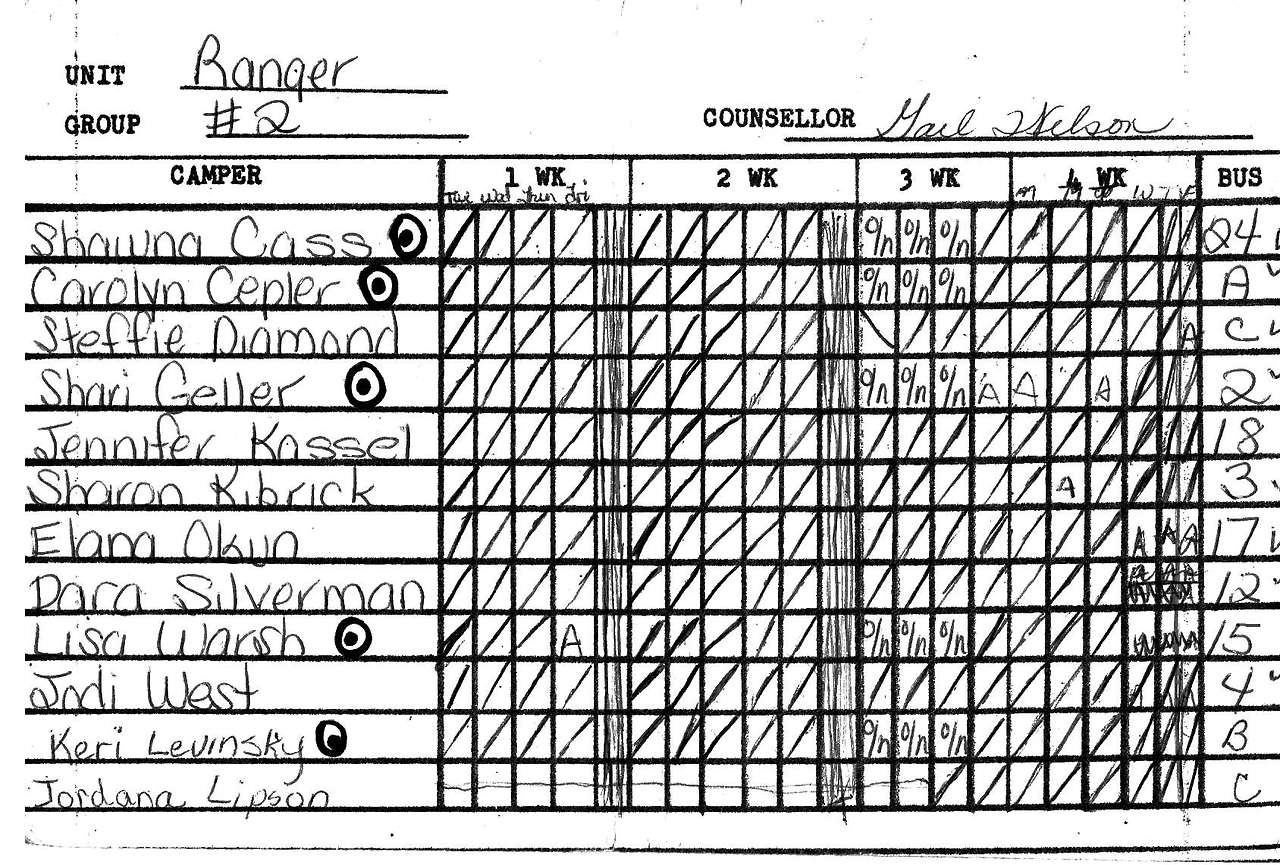 UNIT Ranger
GROUP #2 COUNSELLOR Gail
CAMPER 1 WK 2 WK 3 WK 4 WK BUS
Tue Wed Thur Fri M W T F
Shawna Cass o/n o/n o/n 24
Carolyn Cepler o/n o/n o/n A
Steffie Diamond A C
Shari Geller o/n o/n o/n A A A 2
Jennifer Kassel 18
Sharon Kibrick A 3
Elana Okun A A A 17
Dara Silverman A A A 12
Lisa Warsh A o/n o/n o/n 15
Jodi West 4
Keri Levinsky o/n o/n o/n B
Jordana Lipson C